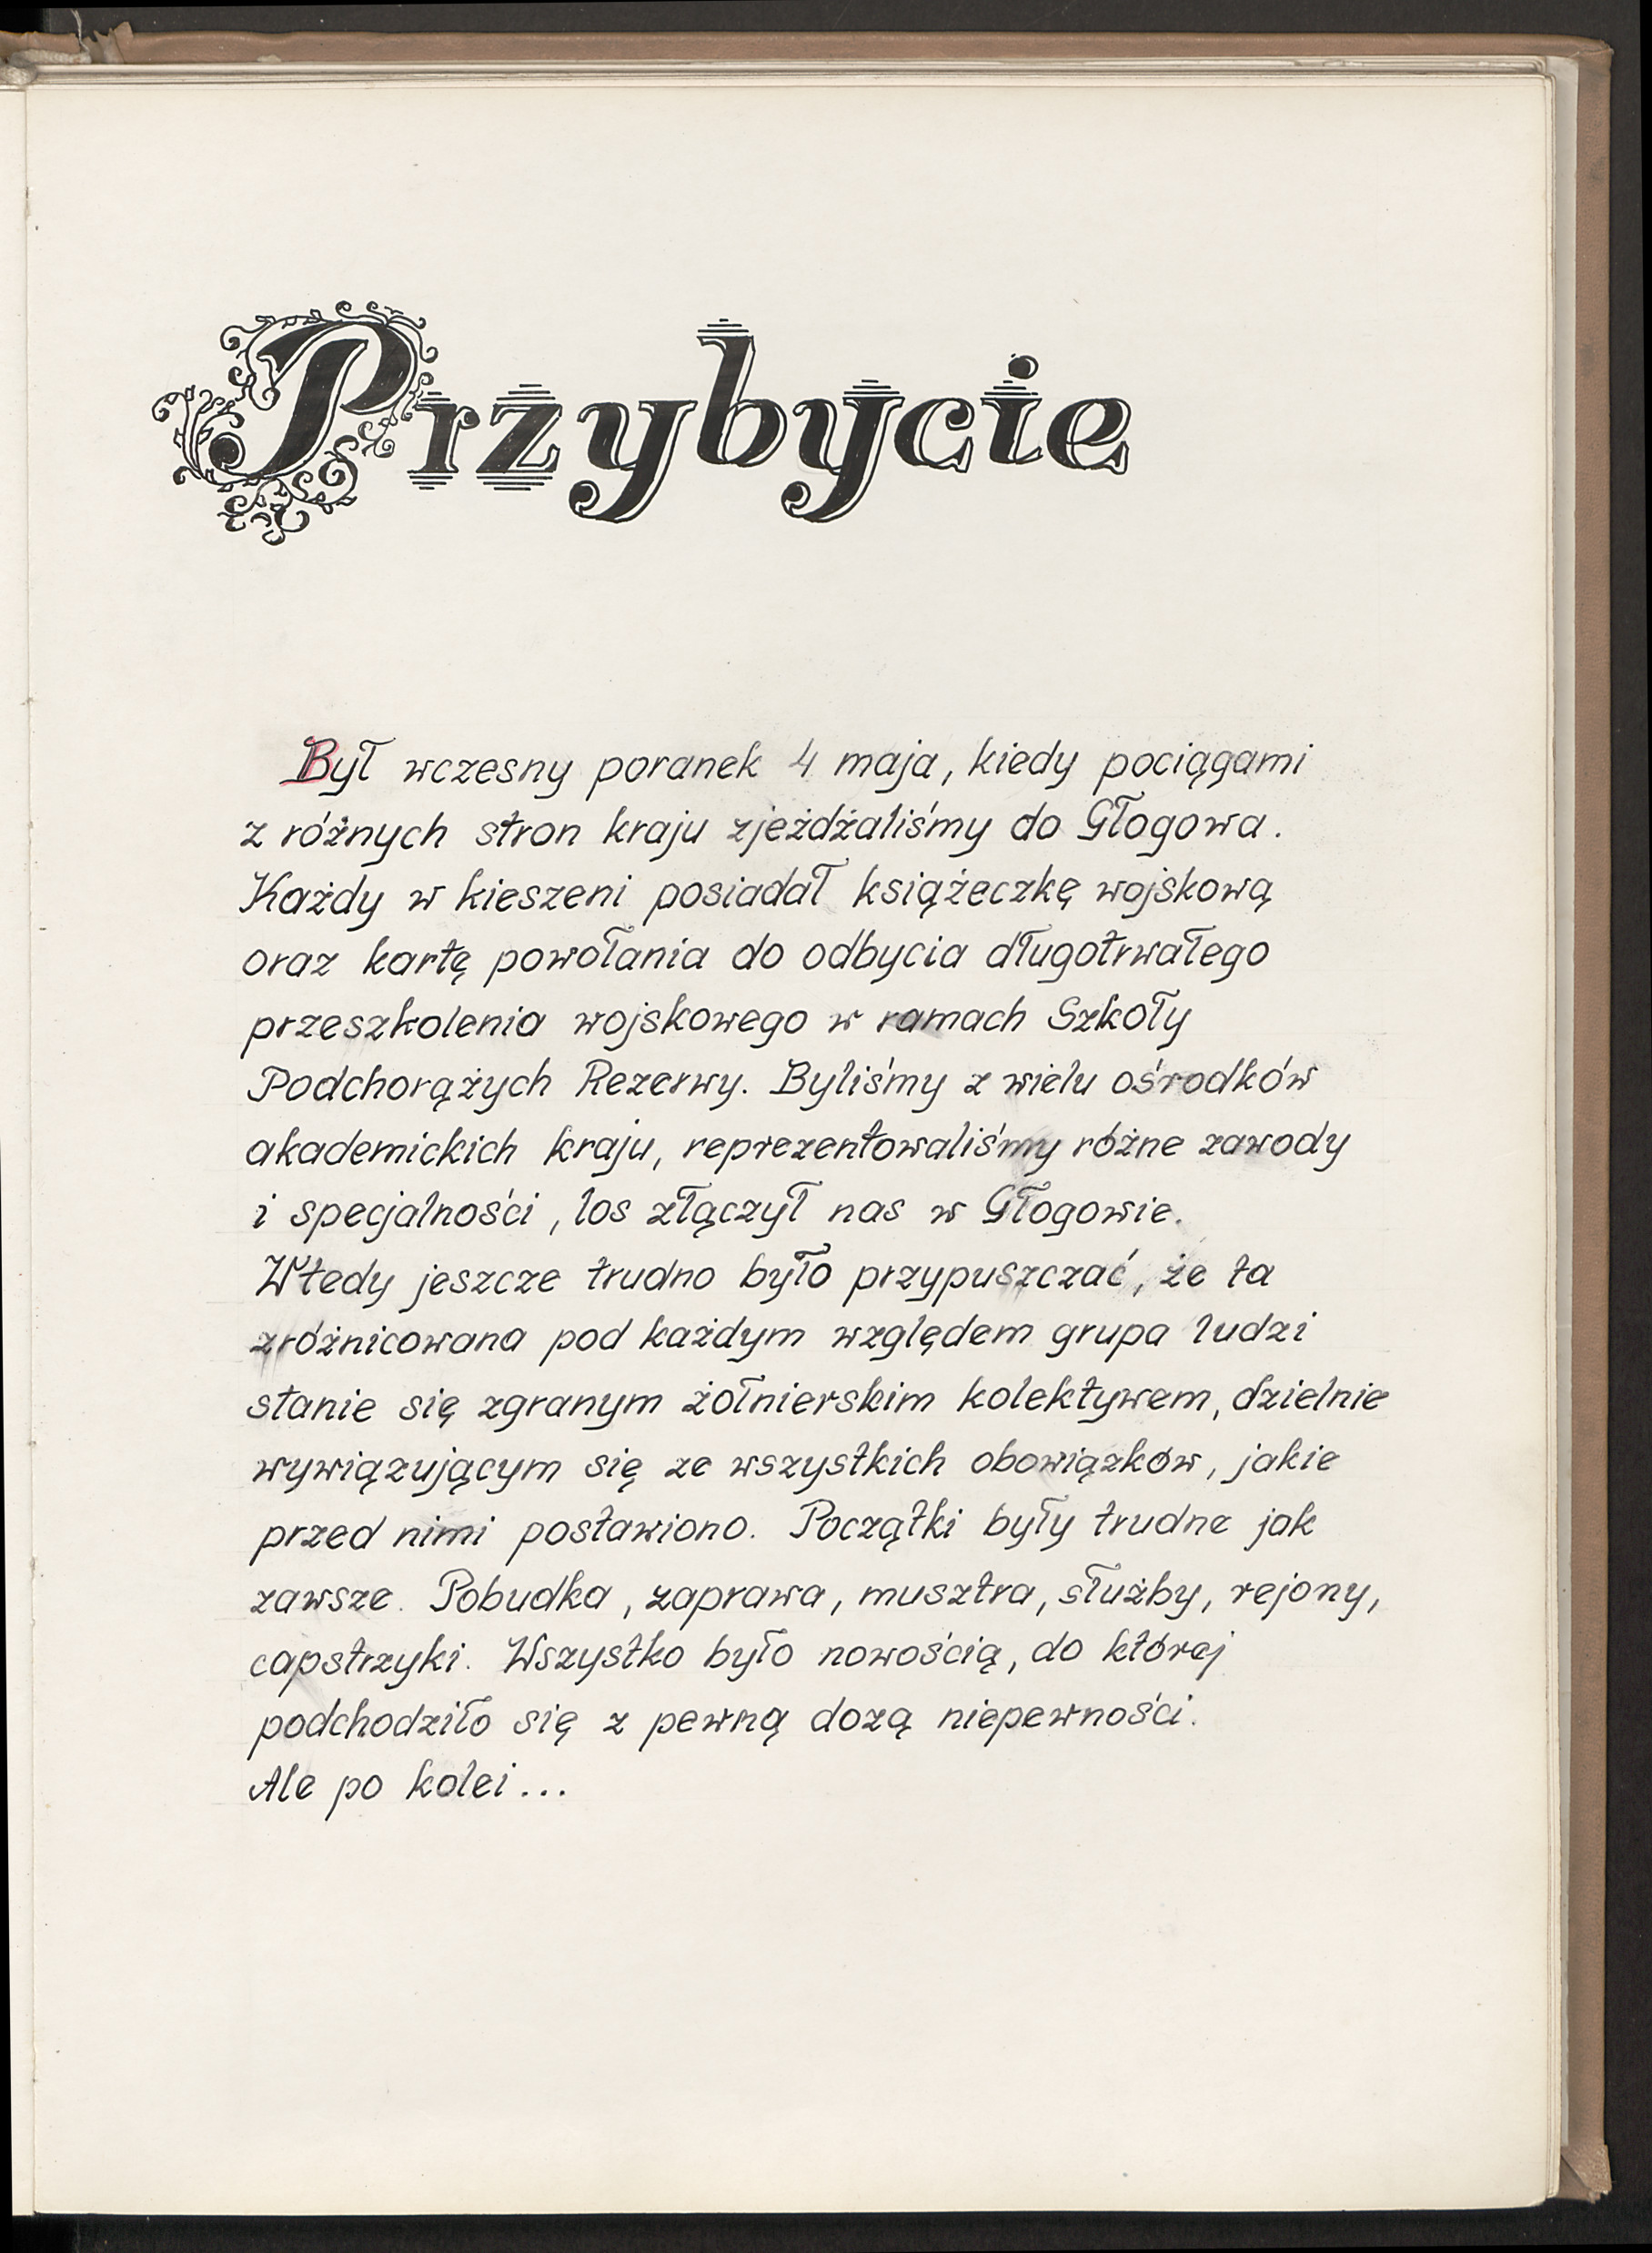 Przybycie
Był wczesny poranek 4 maja, kiedy pociągami
z różnych stron kraju zjeżdżaliśmy do Głogowa.
Każdy w kieszeni posiadał książeczkę wojskową
oraz kartę powołania do odbycia długotrwałego
przeszkolenia wojskowego w ramach Szkoły
Podchorążych Rezerwy. Byliśmy z wielu ośrodków
akademickich kraju, reprezentowaliśmy różne zawody
i specjalności, los złączył nas w Głogowie.
Wtedy jeszcze trudno było przypuszczać, że ta
zróżnicowana pod każdym względem grupa ludzi
stanie się zgranym żołnierskim kolektywem, dzielnie
wywiązującym się ze wszystkich obowiązków, jakie
przed nimi postawiono. Początki były trudne jak
zawsze. Pobudka, zaprawa, musztra, służby, rejony,
capstrzyki. Wszystko było nowością, do której
podchodziło się z pewną dozą niepewności.
Ale po kolei...